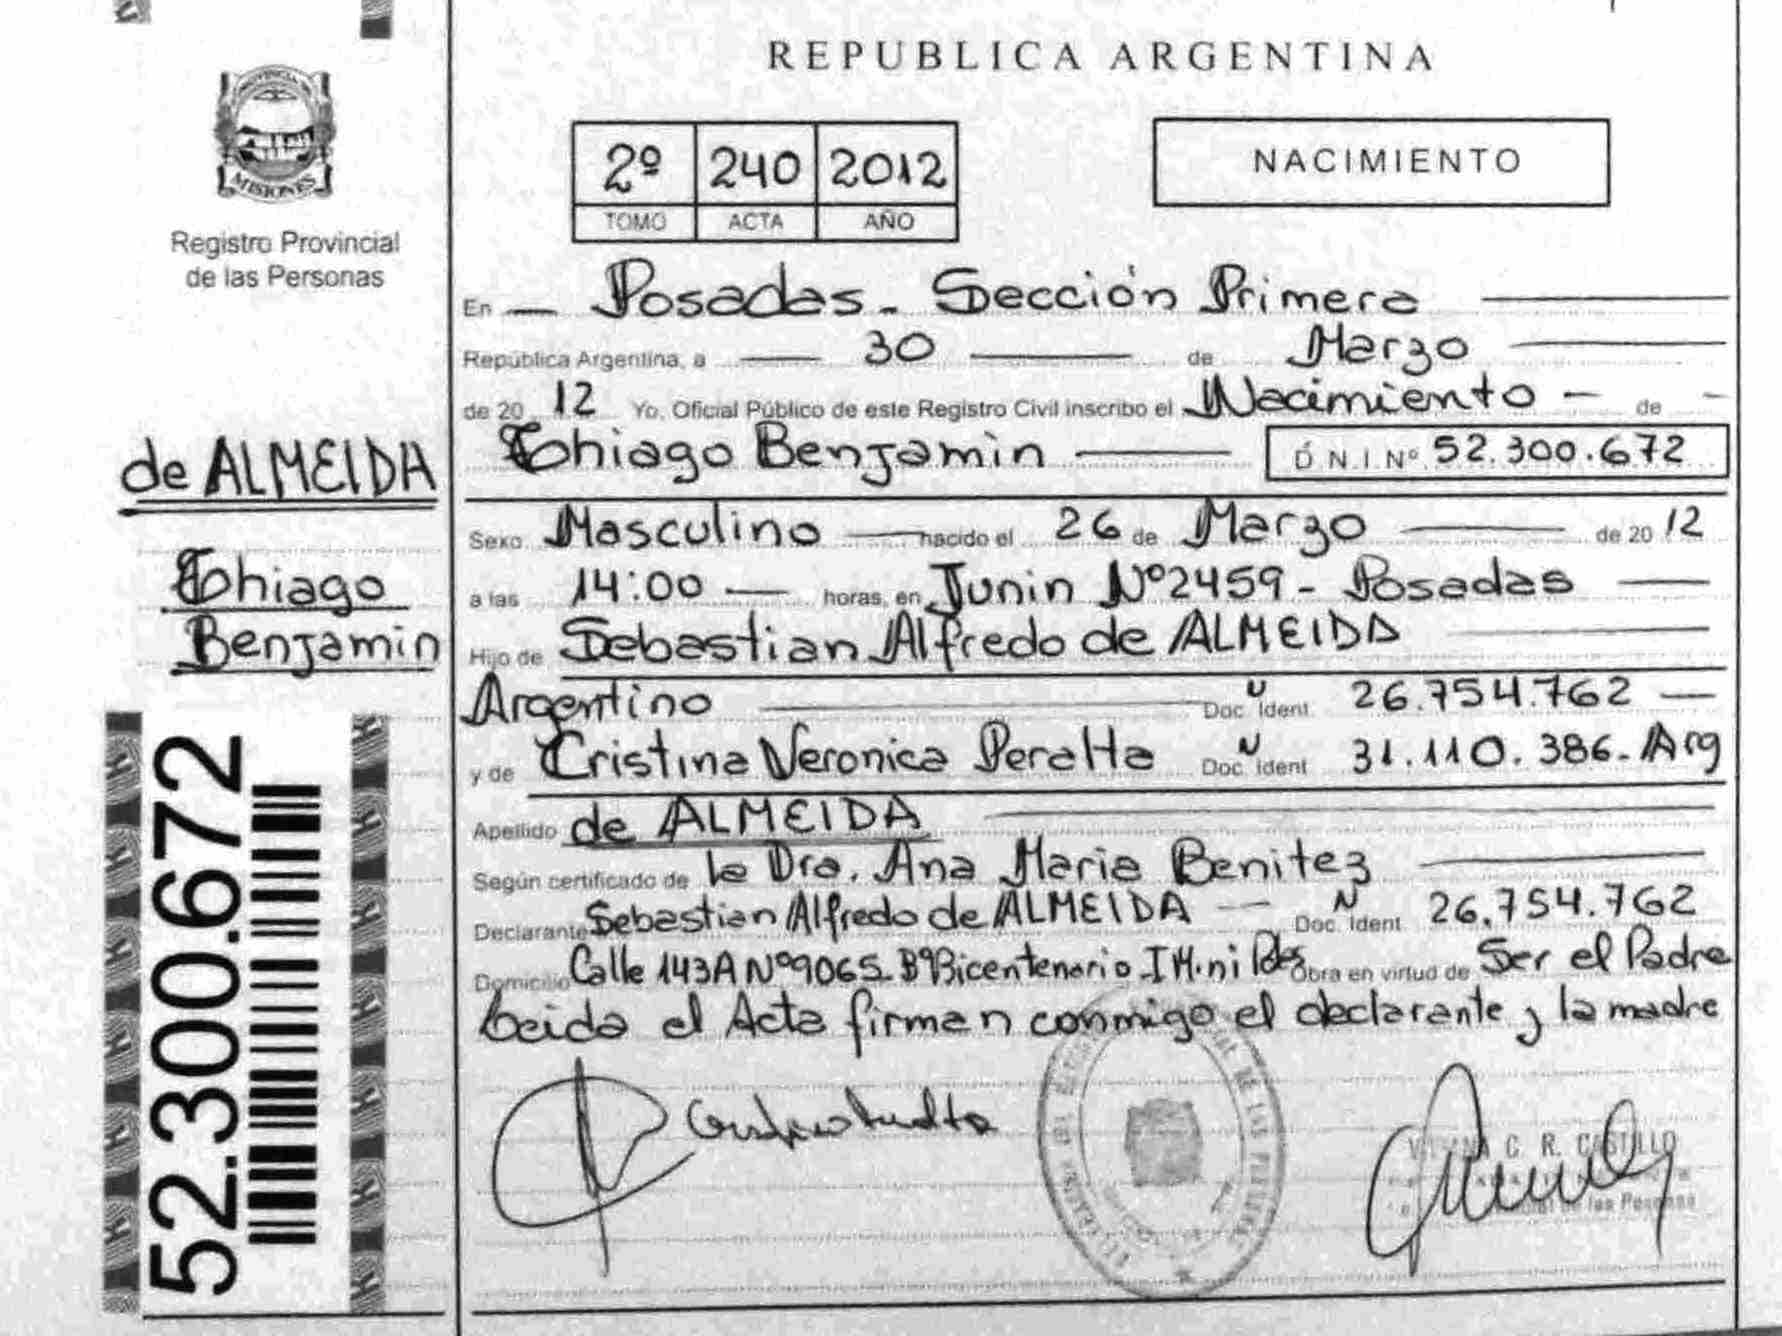 REPUBLICA ARGENTINA
PROVINCIA DE
MISIONES
Registro Provincial
de las Personas
2º 240 2012
TOMO ACTA AÑO
NACIMIENTO
En Posadas - Sección Primera
República Argentina, a 30 de Marzo
de 20 12 Yo, Oficial Público de este Registro Civil inscribo el Nacimiento - de -
Thiago Benjamin D.N.I. Nº 52.300.672
de ALMEIDA
Thiago
Benjamin
52.300.672
Sexo Masculino nacido el 26 de Marzo de 20 12
a las 14:00 horas, en Junin Nº 2459 - Posadas
Hijo de Sebastian Alfredo de ALMEIDA
Argentino Doc. Ident. 26.754.762
y de Cristina Veronica Peralta Doc. Ident. 31.110.386 - Arg
Apellido de ALMEIDA
Según certificado de la Dra. Ana Maria Benitez
Declarante Sebastian Alfredo de ALMEIDA Doc. Ident. 26.754.762
Domicilio Calle 143A Nº 9065 Bº Bicentenario Obra en virtud de Ser el Padre
Leida el Acta firman conmigo el declarante y la madre
C. R. CASTILLO